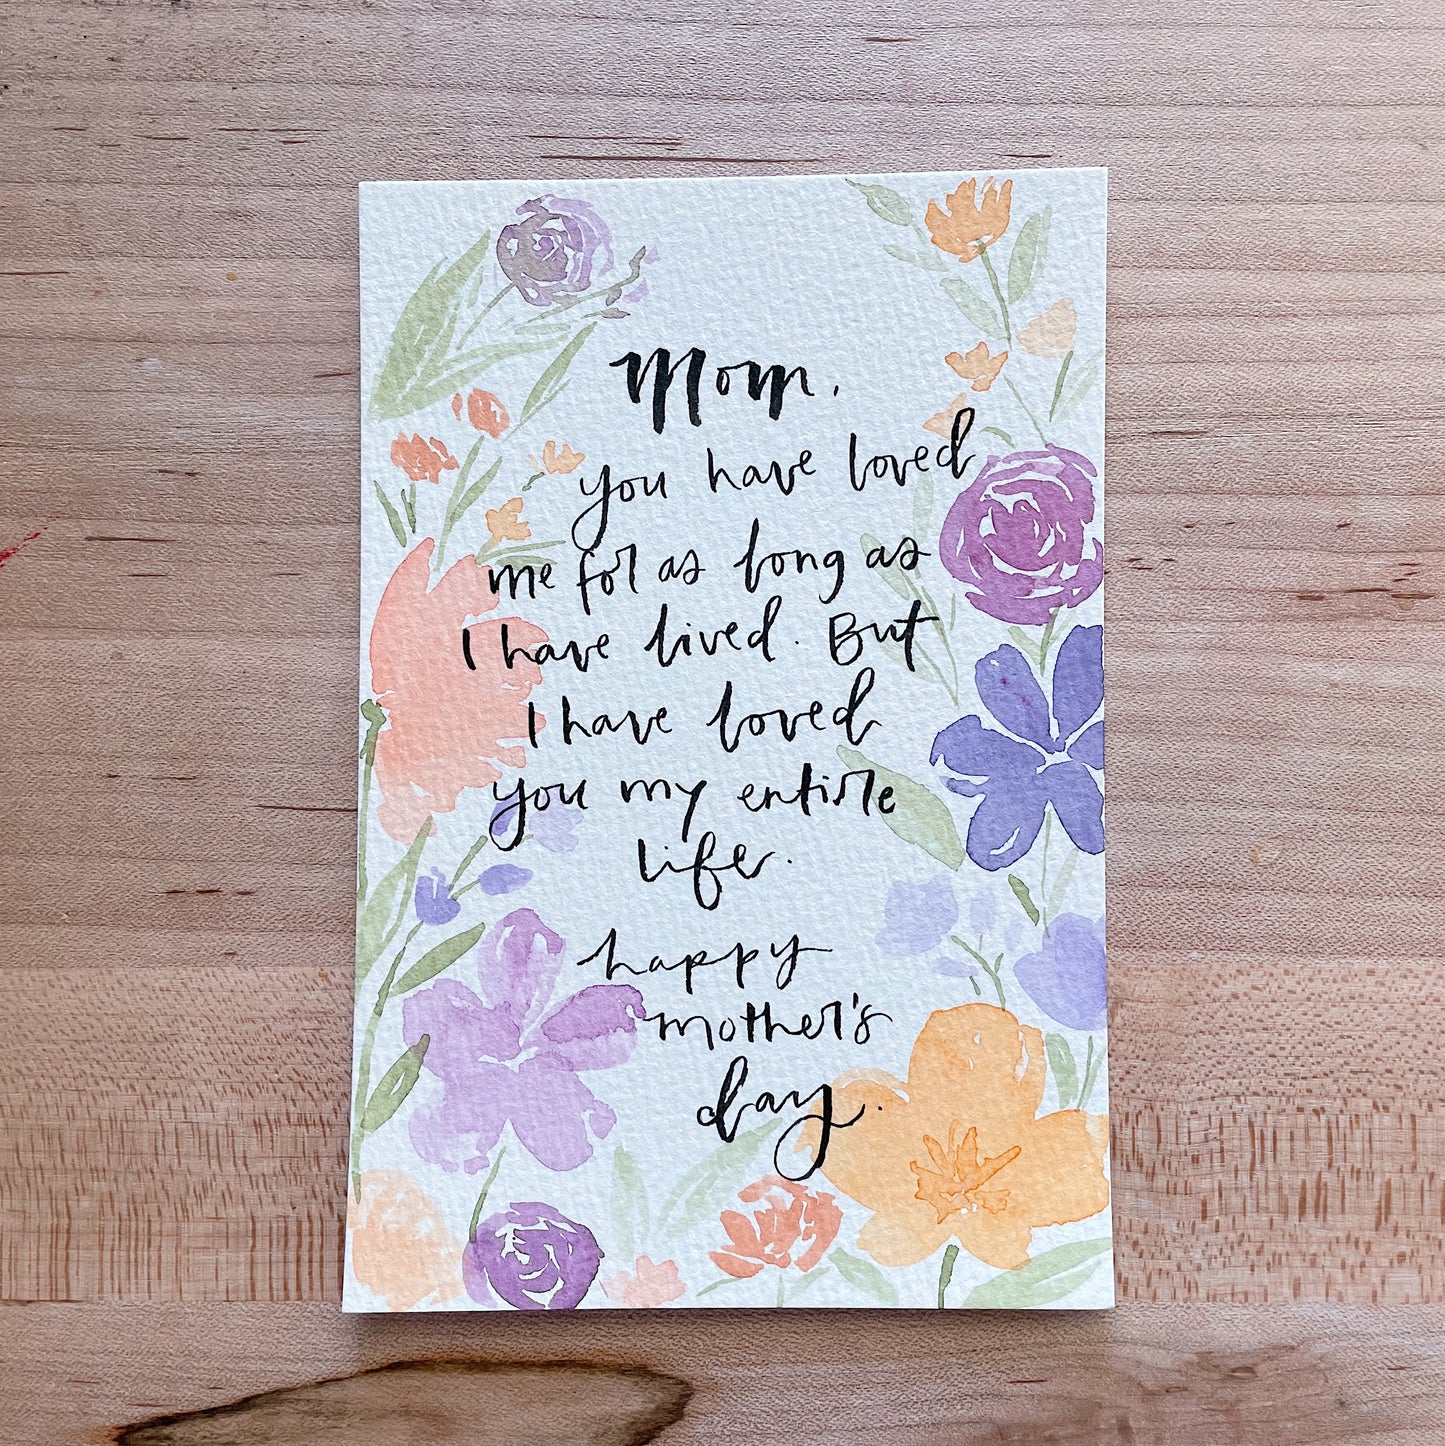 Mom,
you have loved
me for as long as
I have lived. But
I have loved
you my entire
life.
happy
mother's
day.